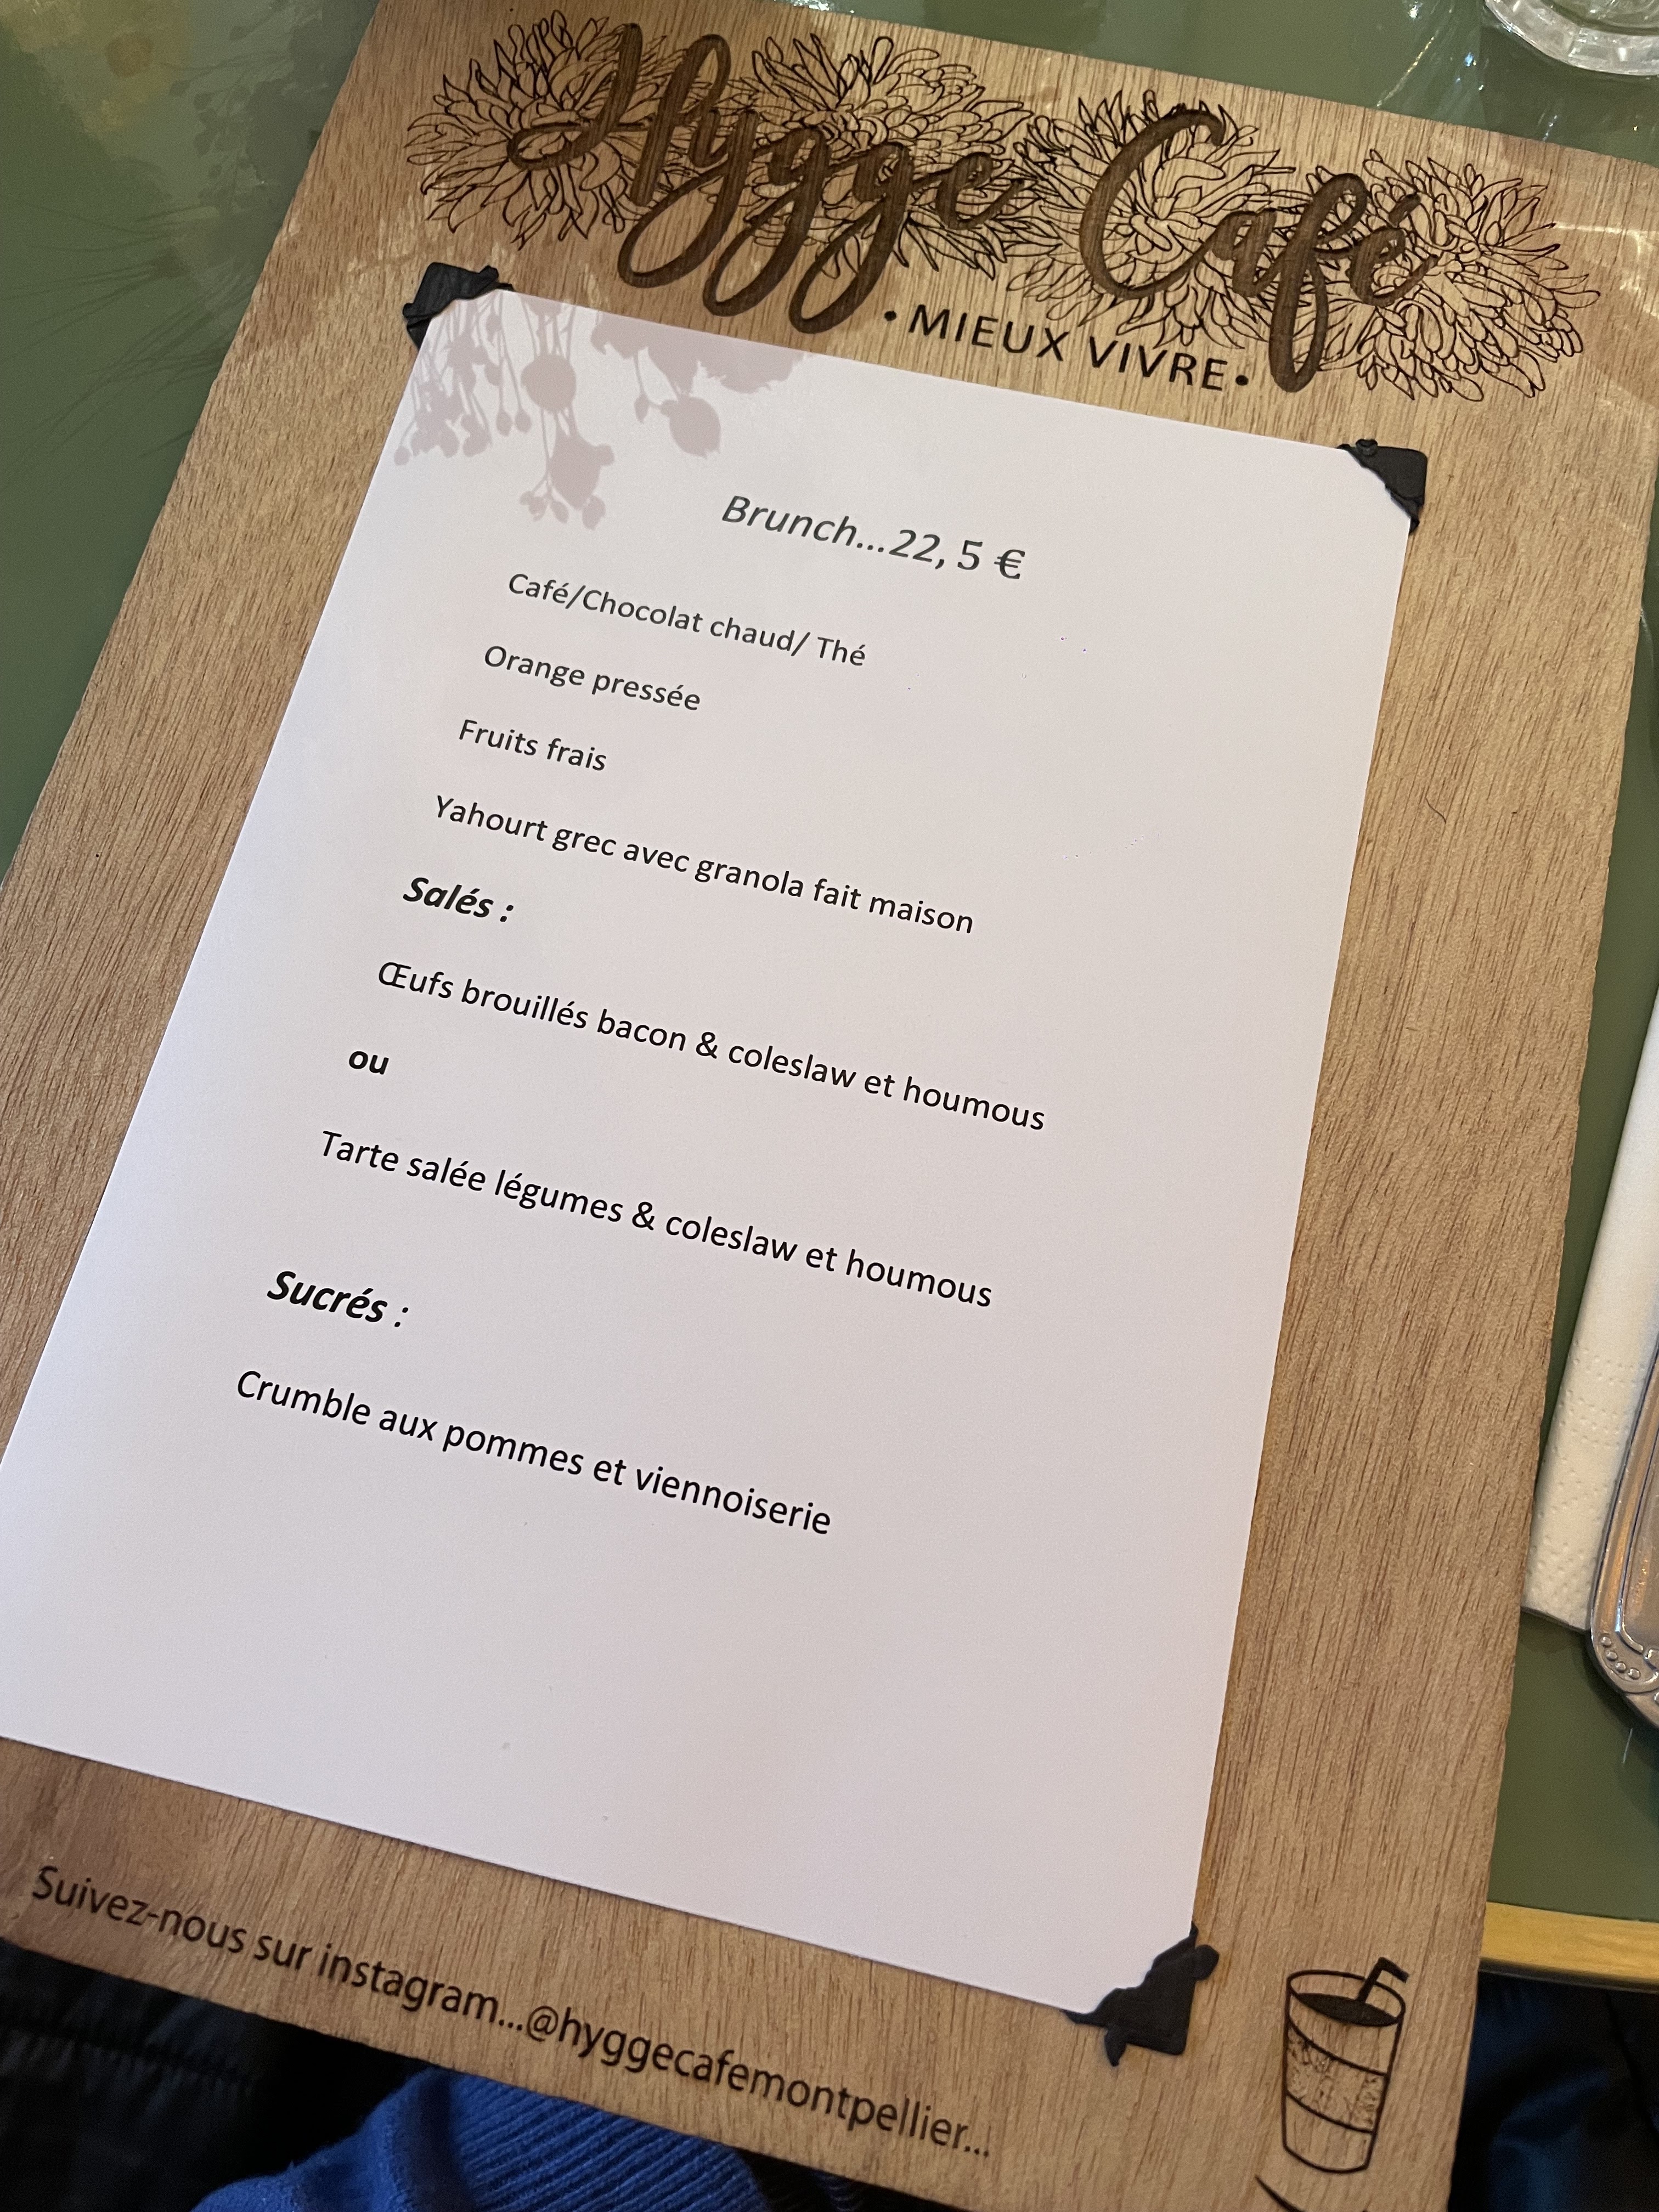 Hygge Café
• MIEUX VIVRE •
Brunch...22, 5 €
Café/Chocolat chaud/ Thé
Orange pressée
Fruits frais
Yahourt grec avec granola fait maison
Salés :
Œufs brouillés bacon & coleslaw et houmous
ou
Tarte salée légumes & coleslaw et houmous
Sucrés :
Crumble aux pommes et viennoiserie
Suivez-nous sur instagram...@hyggecafemontpellier...